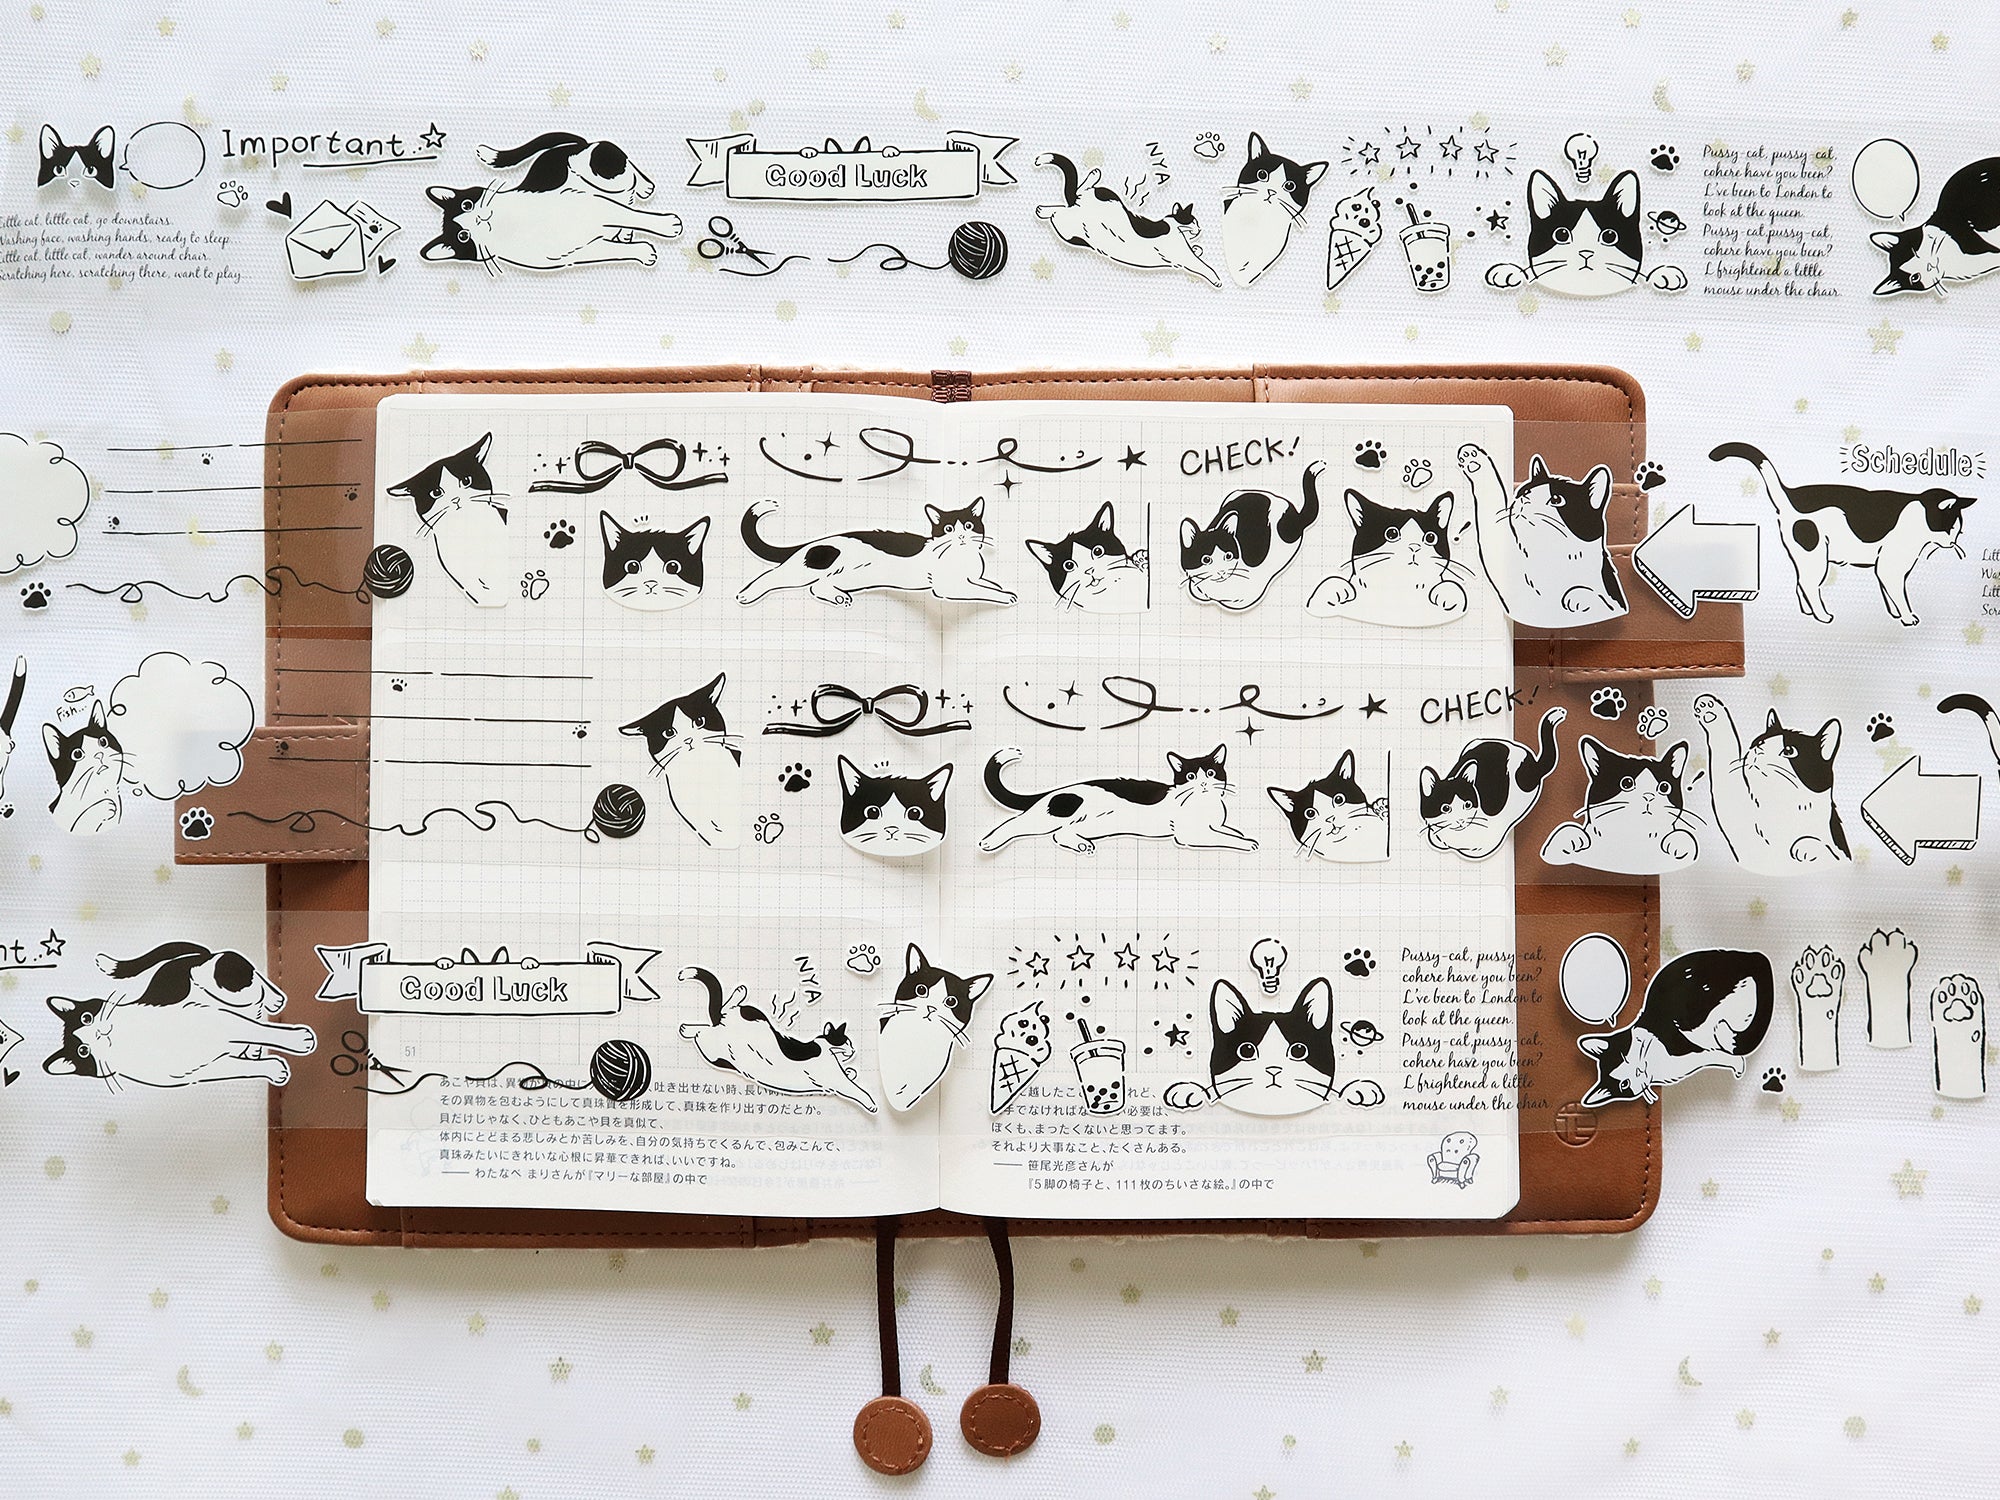 Important..
Little cat, little cat, go downstairs.
Washing face, washing hands, ready to sleep
Little cat, little cat, wander around chair.
Scratching here, scratching there, want to play.
Good Luck
NYA
Pussy-cat, pussy-cat,
cohere have you been?
I've been to London to
look at the queen.
Pussy-cat,pussy-cat,
cohere have you been?
I frightened a little
mouse under the chair.
CHECK!
Schedule
Litt
Was
Litt
Scra
Fish...
CHECK!
nt..
Good Luck
NYA
Pussy-cat, pussy-cat,
cohere have you been?
I've been to London to
look at the queen.
Pussy-cat,pussy-cat,
cohere have you been?
I frightened a little
mouse under the chair.
51
あこや貝は、異物が貝の中に 、吐き出せない時、長い
その異物を包むようにして真珠質を形成して、真珠を作り出すのだとか。
貝だけじゃなく、ひともあこや貝を真似て、
体内にとどまる悲しみとか苦しみを、自分の気持ちでくるんで、包みこんで、
真珠みたいにきれいな心根に昇華できれば、いいですね。
—— わたなべ まりさんが『マリーな部屋』の中で
越したこ れど、
手でなければな 必要は、
ぼくも、まったくないと思ってます。
それより大事なこと、たくさんある。
—— 笹尾光彦さんが
『5脚の椅子と、111枚のちいさな絵。』の中で